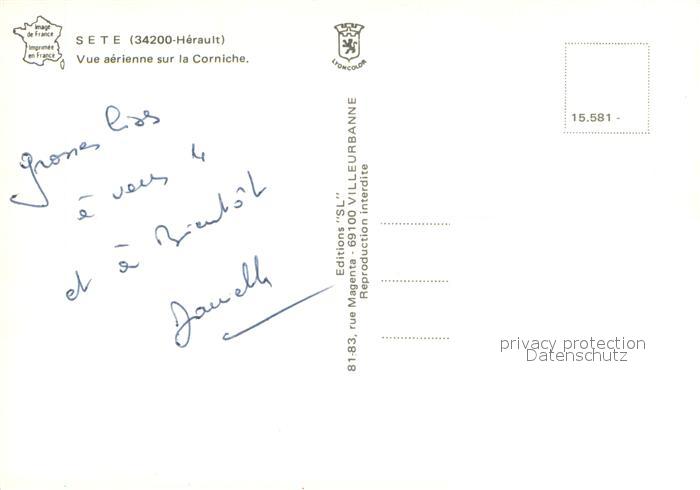 Image
de France
Imprimée
en France
SETE (34200-Hérault)
Vue aérienne sur la Corniche.
LYONCOLOR
15.581 -
grosses bises
à vous 4
et à Bientôt
Danielle
Editions "SL"
81-83, rue Magenta - 69100 VILLEURBANNE
Reproduction interdite
privacy protection
Datenschutz